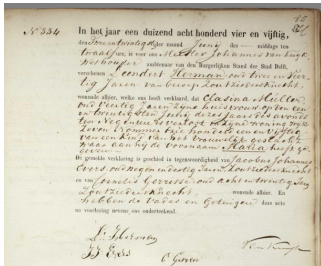 No 334
In het jaar een duizend acht honderd vier en vijftig,
den Drie en twintigsten der maand Juny des middags ten
twaalf ure, is voor ons Meester Johannes van
Wethouder ambtenaar van den Burgerlijken Stand der Stad Delft,
verschenen Leendert Herman oud twee en
tig Jaren van beroep Zoutziedersknecht,
wonende alhier, welke ons heeft verklaard, dat Clasina
oud Veertig Jaren Zyne huisvrouw op den een
en twintigsten Juny dezes jaars des avonds
ten Negen ure
honderd een en Vyftig
van een Kind van het Vrouwelyk geslacht,
waar aan hy de voornaam Maria heeft ge-
geven
De gemelde verklaring is geschied in tegenwoordigheid van Jacobus Johannes
Evers oud Negen en dertig Jaren Zoutziedersknecht
en van Cornelis oud acht en twintig Jaren
Zoutziedersknecht wonende alhier. En
hebben de Vader en Getuigen deze acte
na voorlezing nevens ons onderteekend.
L: Herman
JJ Evers